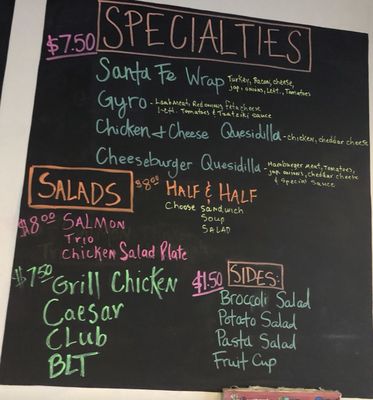 $7.50 SPECIALTIES
Santa Fe Wrap Turkey, Bacon, cheese,
jap. onions, Lett., Tomatoes
Gyro - Lamb meat, Red onions, feta cheese
Lett. Tomatoes & Tzatziki sauce
Chicken & Cheese Quesidilla - chicken, cheddar cheese
Cheeseburger Quesidilla - Hamburger meat, Tomatoes,
jap. onions, cheddar cheese
& Special Sauce
SALADS
$8.00 HALF & HALF
Choose Sandwich
Soup
SALAD
$8.00 SALMON
Trio
Chicken Salad Plate
$7.50 Grill Chicken
Caesar
CLub
BLT
$1.50 SIDES:
Broccoli Salad
Potato Salad
Pasta Salad
Fruit Cup